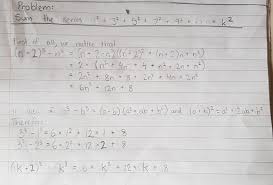 Problem:
Sum the series 1² + 3² + 5² + 7² + 9² + ... + k²
First of all, we notice that
(n+2)³ - n³ = (n+2-n)((n+2)² + (n+2)n + n²)
= 2 · (n² + 4n + 4 + n² + 2n + n²)
= 2n² + 8n + 8 + 2n² + 4n + 2n²
= 6n² + 12n + 8
a³ - b³ = (a-b)(a² + ab + b²) and (a+b)² = a² + 2ab + b²
Therefore:
3³ - 1³ = 6 × 1² + 12 × 1 + 8
= 6 × 2² + 12 × 2 + 8
(k+2)³ - k³ = 6 × k² + 12 × k + 8